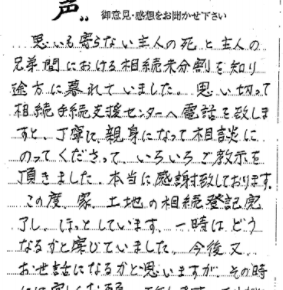 声 御意見・感想をお聞かせ下さい
思いも寄らない主人の死と主人の
兄弟間における相続未分割を知り
途方に暮れていました。思い切って
相続手続支援センターへ電話を致しま
すと、丁寧に親身になって相談に
のってくださって、いろいろご教示を
頂きました。本当に感謝致しております。
この度、家、土地の相続登記完
了し、ほっとしています。一時はどう
なるかと案じていました。今後又
お世話になるかと思いますが、その時